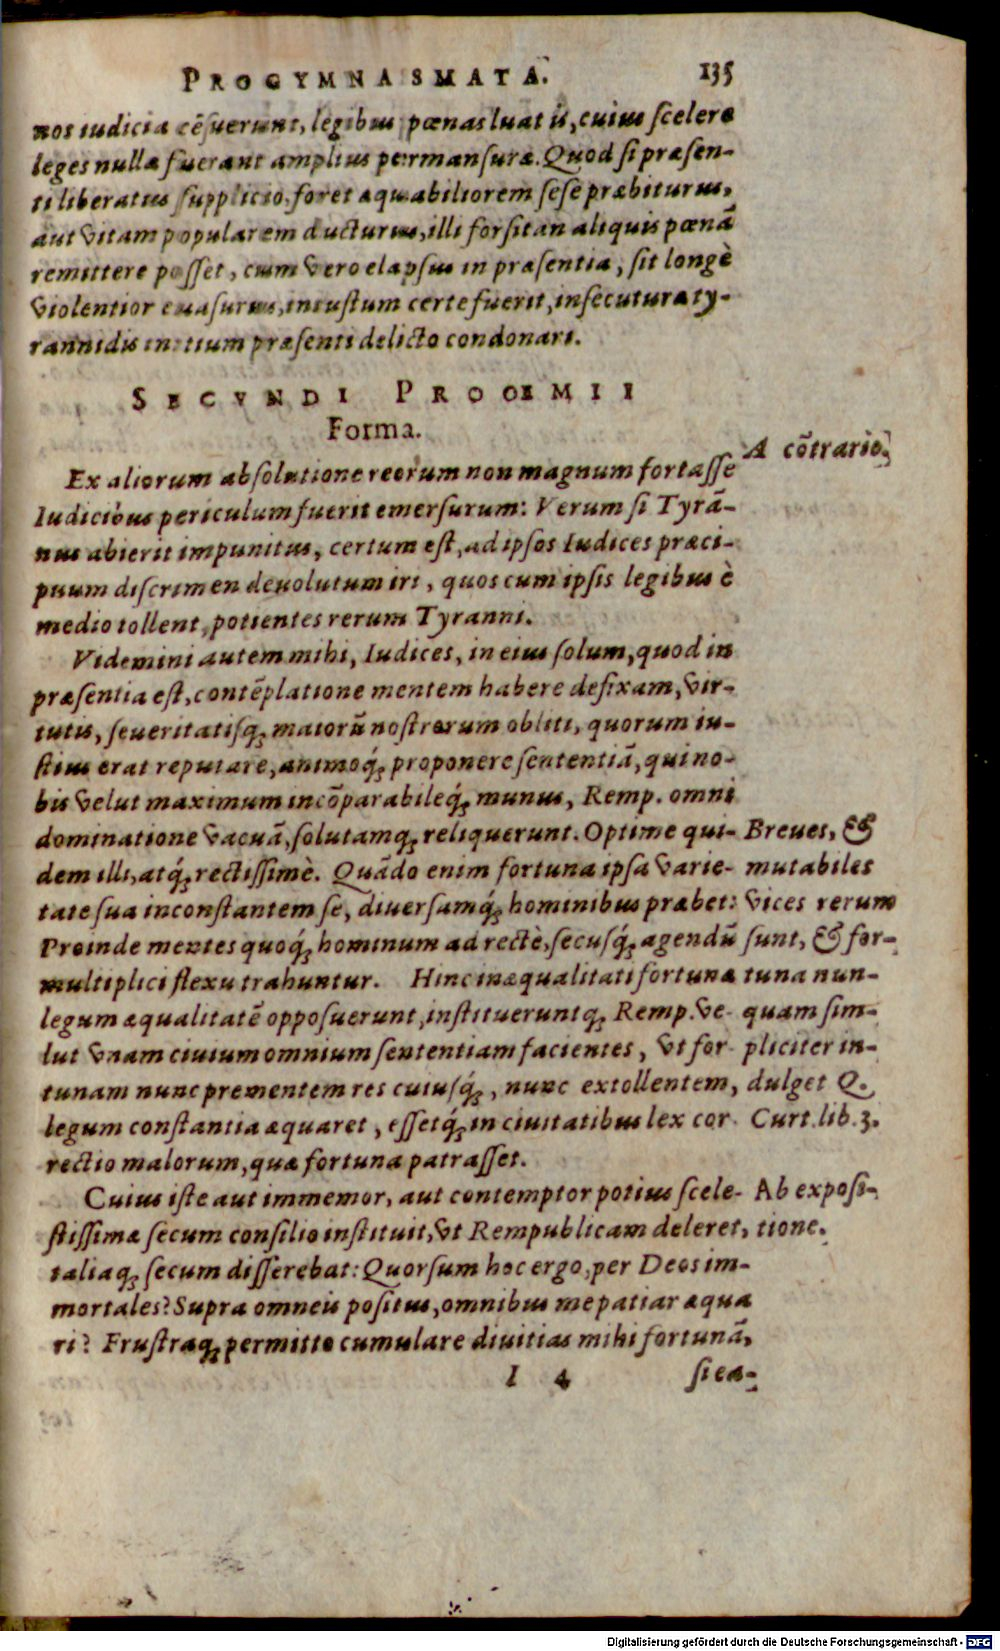 PROGYMNASMATA. 135
nos iudicia cēsuerunt, legibus pœnas luat is, cuius scelere
leges nullæ fuerant amplius permansuræ. Quod si præsen-
ti liberatus supplicio, foret æquabiliorem sese præbiturus,
aut vitam popularem ducturus, illi forsitan aliquis pœnā
remittere posset, cum vero elapsus in præsentia, sit longè
violentior euasurus, iniustum certe fuerit, insecuturæ ty-
rannidis initium præsenti delicto condonari.
SECVNDI PROOEMII
Forma.
A cōtrario.
Ex aliorum absolutione reorum non magnum fortasse
Iudicibus periculum fuerit emersurum: Verum si Tyrā-
nus abierit impunitus, certum est, ad ipsos Iudices præci-
puum discrimen deuolutum iri, quos cum ipsis legibus è
medio tollent, potientes rerum Tyranni.
Videmini autem mihi, Iudices, in eius solum, quod in
præsentia est, contēplatione mentem habere defixam, vir-
tutis, seueritatisq́; maiorū nostrorum obliti, quorum iu-
stius erat reputare, animoq́; proponere sententiā, qui no-
bis velut maximum incōparabileq́; munus, Remp. omni
dominatione vacuā, solutamq; reliquerunt. Optime qui-
dem illi, atq́; rectissimè. Quādo enim fortuna ipsa varie-
tate sua inconstantem se, diuersamq́; hominibus præbet:
Proinde mentes quoq́; hominum ad rectè, secusq́; agendū
multiplici flexu trahuntur. Hinc inæqualitati fortunæ
legum æqualitatē opposuerunt, instituerunt q; Remp. ve-
lut vnam ciuium omnium sententiam facientes, vt for-
tunam nunc prementem res cuiusq́;, nunc extollentem,
legum constantia æquaret, essetq́; in ciuitatibus lex cor-
rectio malorum, quæ fortuna patrasset.
Breues, &
mutabiles
vices rerum
sunt, & for-
tuna nun-
quam sim-
pliciter in-
dulget Q.
Curt. lib. 3.
Cuius iste aut immemor, aut contemptor potius scele-
stissimæ secum consilio instituit, vt Rempublicam deleret,
taliaq; secum disserebat: Quorsum hoc ergo, per Deos im-
mortales? Supra omneis positus, omnibus me patiar æqua
ri? Frustraq; permitto cumulare diuitias mihi fortunā,
Ab exposi-
tione.
I 4 si ea-
Digitalisierung gefördert durch die Deutsche Forschungsgemeinschaft - DFG